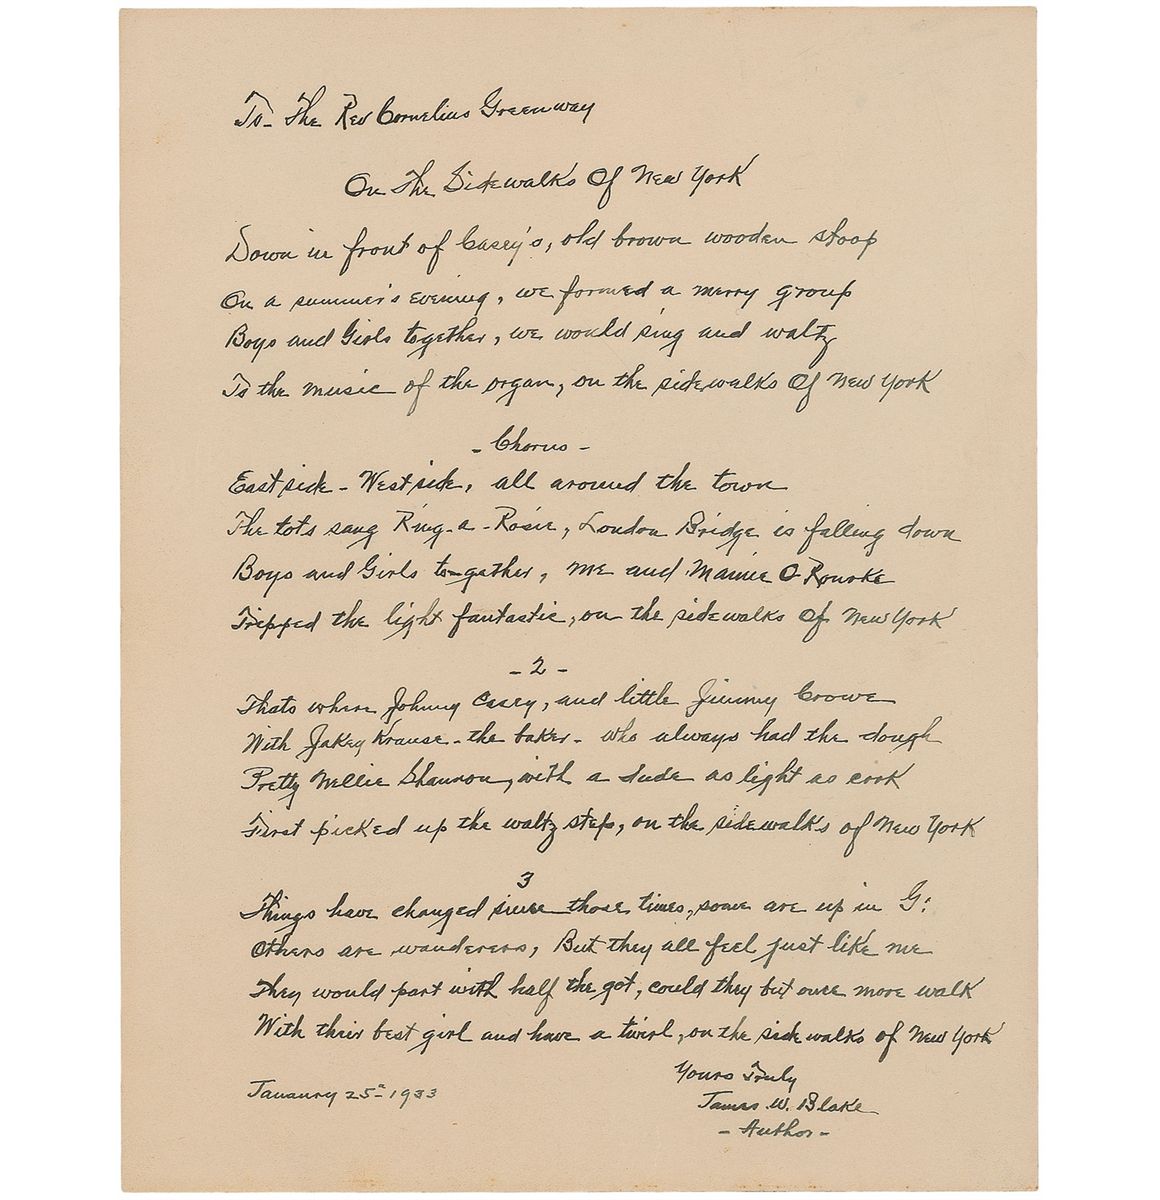 To - The Rev Cornelius Greenway
On The Sidewalks Of New York
Down in front of Casey's, old brown wooden stoop
On a summer's evening, we formed a merry group
Boys and Girls together, we would sing and waltz
To the music of the organ, on the sidewalks Of New York
- Chorus -
East side - West side, all around the town
The tots sang Ring-a-Rosie, London Bridge is falling down
Boys and Girls to-gather, me and Mamie O Rourke
Tripped the light fantastic, on the sidewalks Of New York
- 2 -
Thats where Johnny Casey, and little Jimmy Crowe
With Jakey Krause - the baker - who always had the dough
Pretty Nellie Shannon, with a dude as light as cork
First picked up the waltz step, on the sidewalks of New York
3
Things have changed since those times, some are up in G:
Others are wanderers, But they all feel just like me
They would part with half the got, could they but once more walk
With their best girl and have a twirl, on the side walks of New York
Yours Truly
January 25th 1933
James W. Blake
- Author -